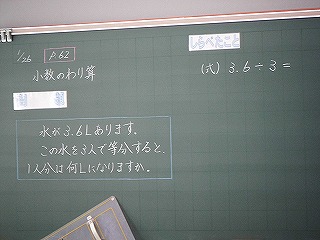 1/26 P.62
小数のわり算
水が3.6Lあります。
この水を3人で等分すると、
1人分は何Lになりますか。
しらべたこと
(式) 3.6÷3=